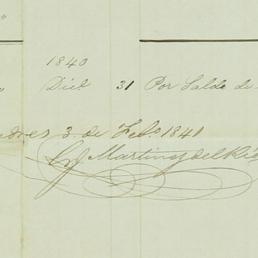 1840
Dice 31 Por Saldo de
dres 3 de Febo 1841
Martinez del Rio